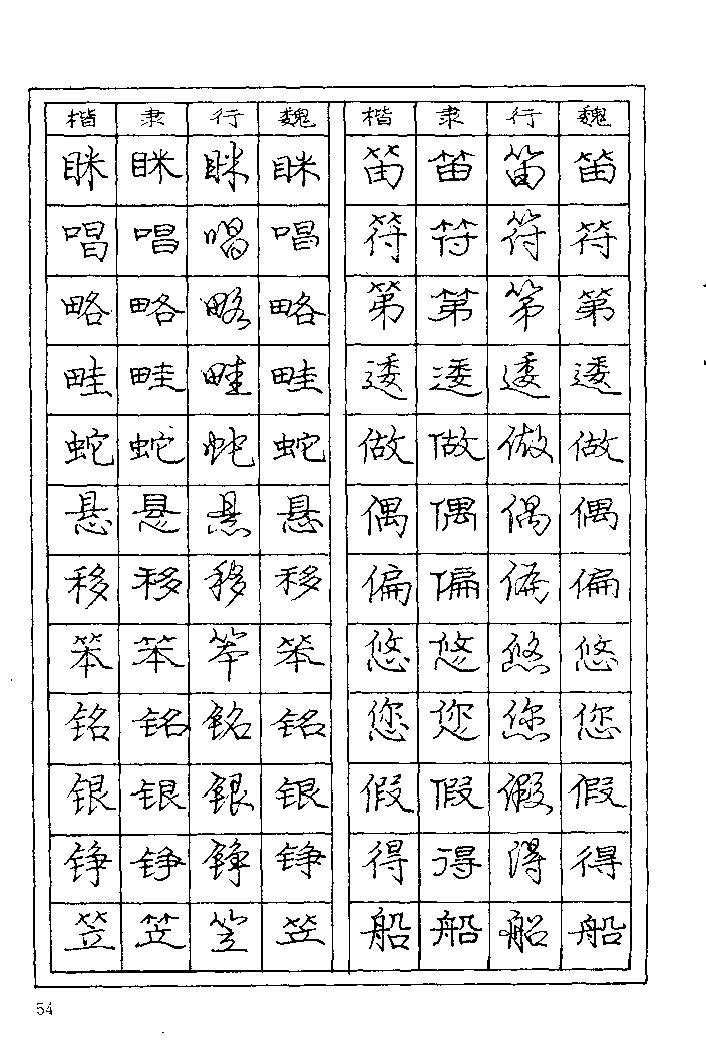 楷 隶 行 魏 楷 隶 行 魏
眯 眯 眯 眯 笛 笛 笛 笛
唱 唱 唱 唱 符 符 符 符
略 略 略 略 第 第 第 第
畦 畦 畦 畦 逶 逶 逶 逶
蛇 蛇 蛇 蛇 做 做 做 做
悬 悬 悬 悬 偶 偶 偶 偶
移 移 移 移 偏 偏 偏 偏
笨 笨 笨 笨 悠 悠 悠 悠
铭 铭 铭 铭 您 您 您 您
银 银 银 银 假 假 假 假
铮 铮 铮 铮 得 得 得 得
笠 笠 笠 笠 船 船 船 船
54